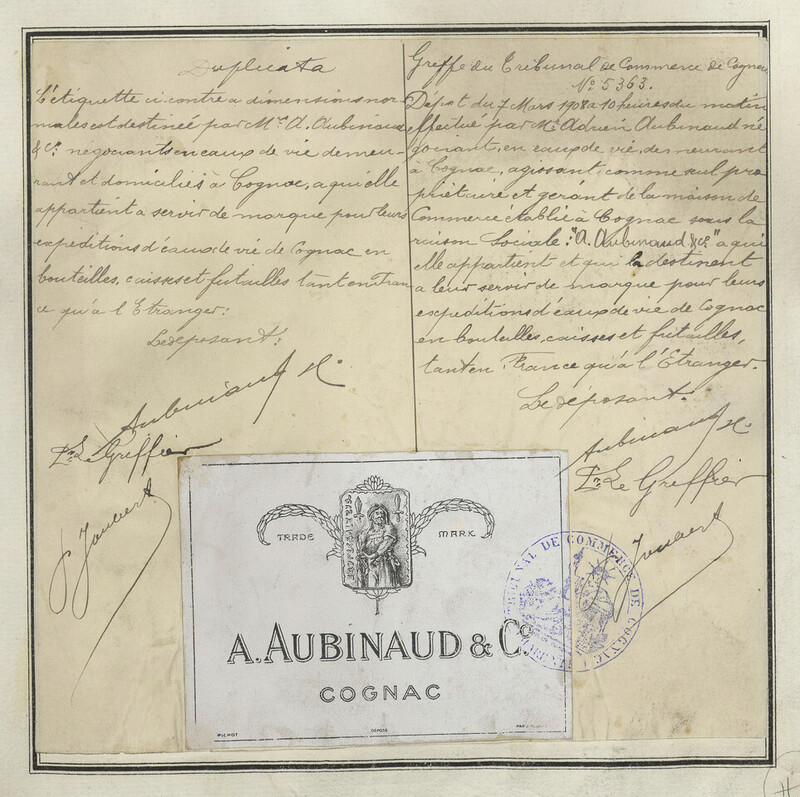 Duplicata
L'étiquette ci contre a dimensions nor-
males est destinée par Mrs A. Aubinaud
& Co négociants en eaux de vie demeu-
rant et domiciliés à Cognac, a qui elle
appartient a servir de marque pour leurs
expeditions d'eaux de vie de Cognac en
bouteilles, caisses et futailles tant en Fran
ce qu'à l'Etranger:
Le déposant:
Aubinaud & Co
Pr Le Greffier
P. Joubert
Greffe du Tribunal de Commerce de Cognac
No 5363.
Dépot du 7 Mars 1908 a 10 heures du matin
effectué par Mr Adrien Aubinaud né
gociant, en eaux de vie, demeurant
à Cognac, agissant comme seul pro
priétaire et gérant de la maison de
Commerce établie à Cognac sous la
raison Sociale: "A. Aubinaud & Co" a qui
elle appartient et qui la destinent
a leur servir de marque pour leurs
expeditions d'eaux de vie de Cognac
en bouteilles, caisses et futailles,
tant en France qu'à l'Etranger.
Le déposant:
Aubinaud & Co
Pr Le Greffier
Joubert
TRADE MARK
A. AUBINAUD & Co.
COGNAC
PICHOT
DÉPOSÉ
TRIBUNAL DE COMMERCE DE COGNAC